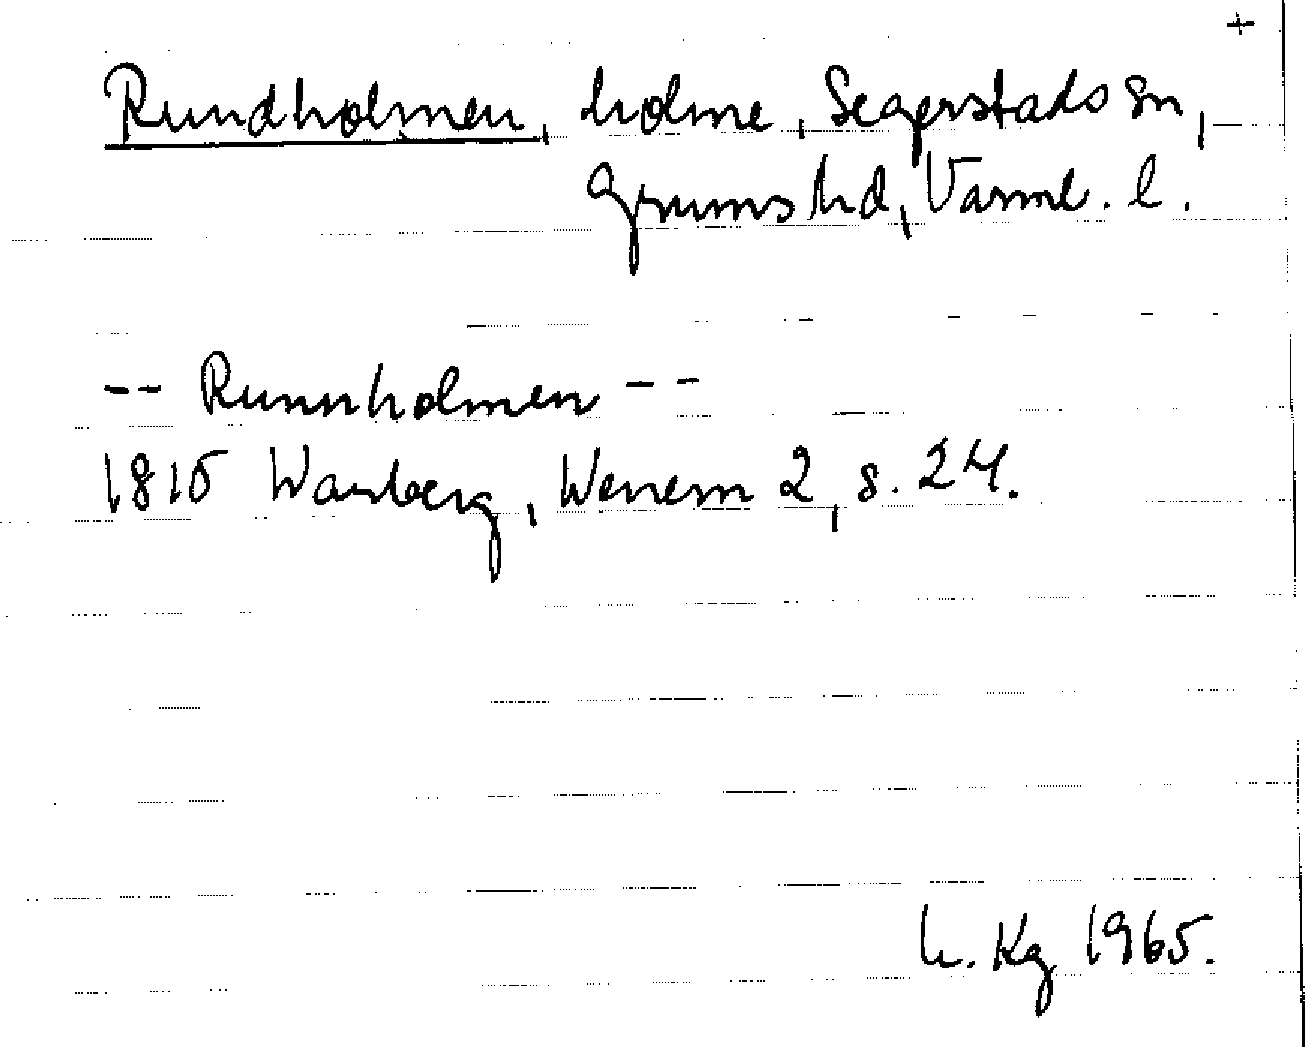 +
Rundholmen, holme, Segerstads sn,
Grums hd, Värml. l.
-- Runnholmen --
1815 Warberg, Wenern 2, s. 24.
h. Kg 1965.